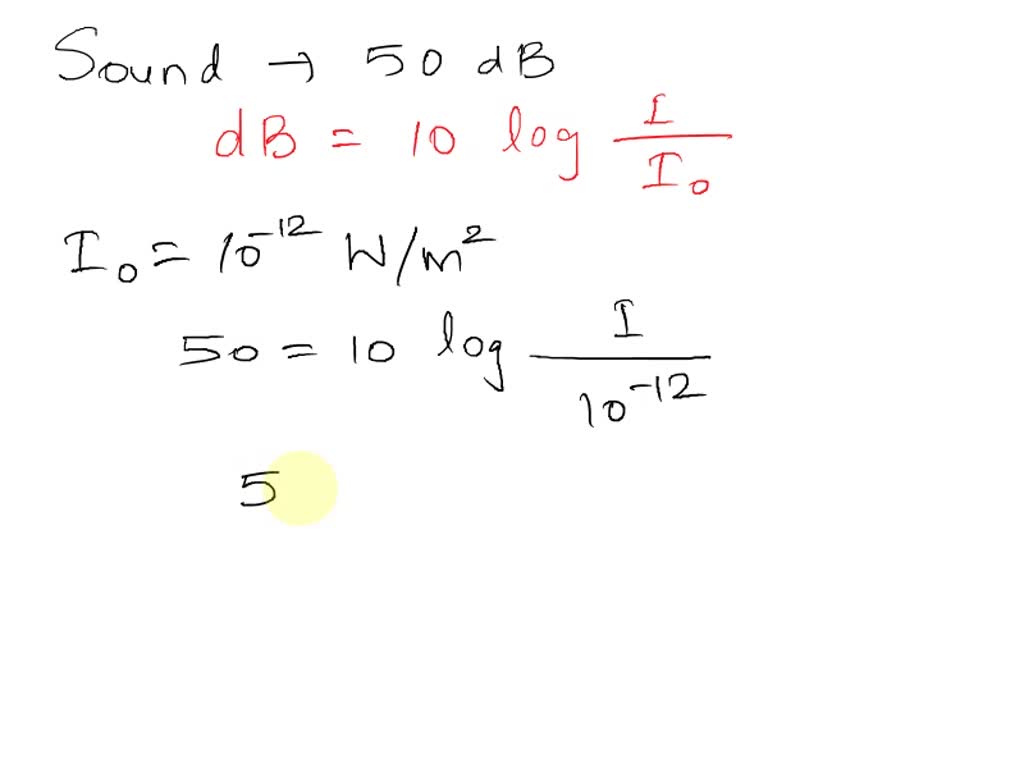 Sound → 50 dB
dB = 10 log I/I₀
I₀ = 10⁻¹² W/m²
50 = 10 log I/10⁻¹²
5